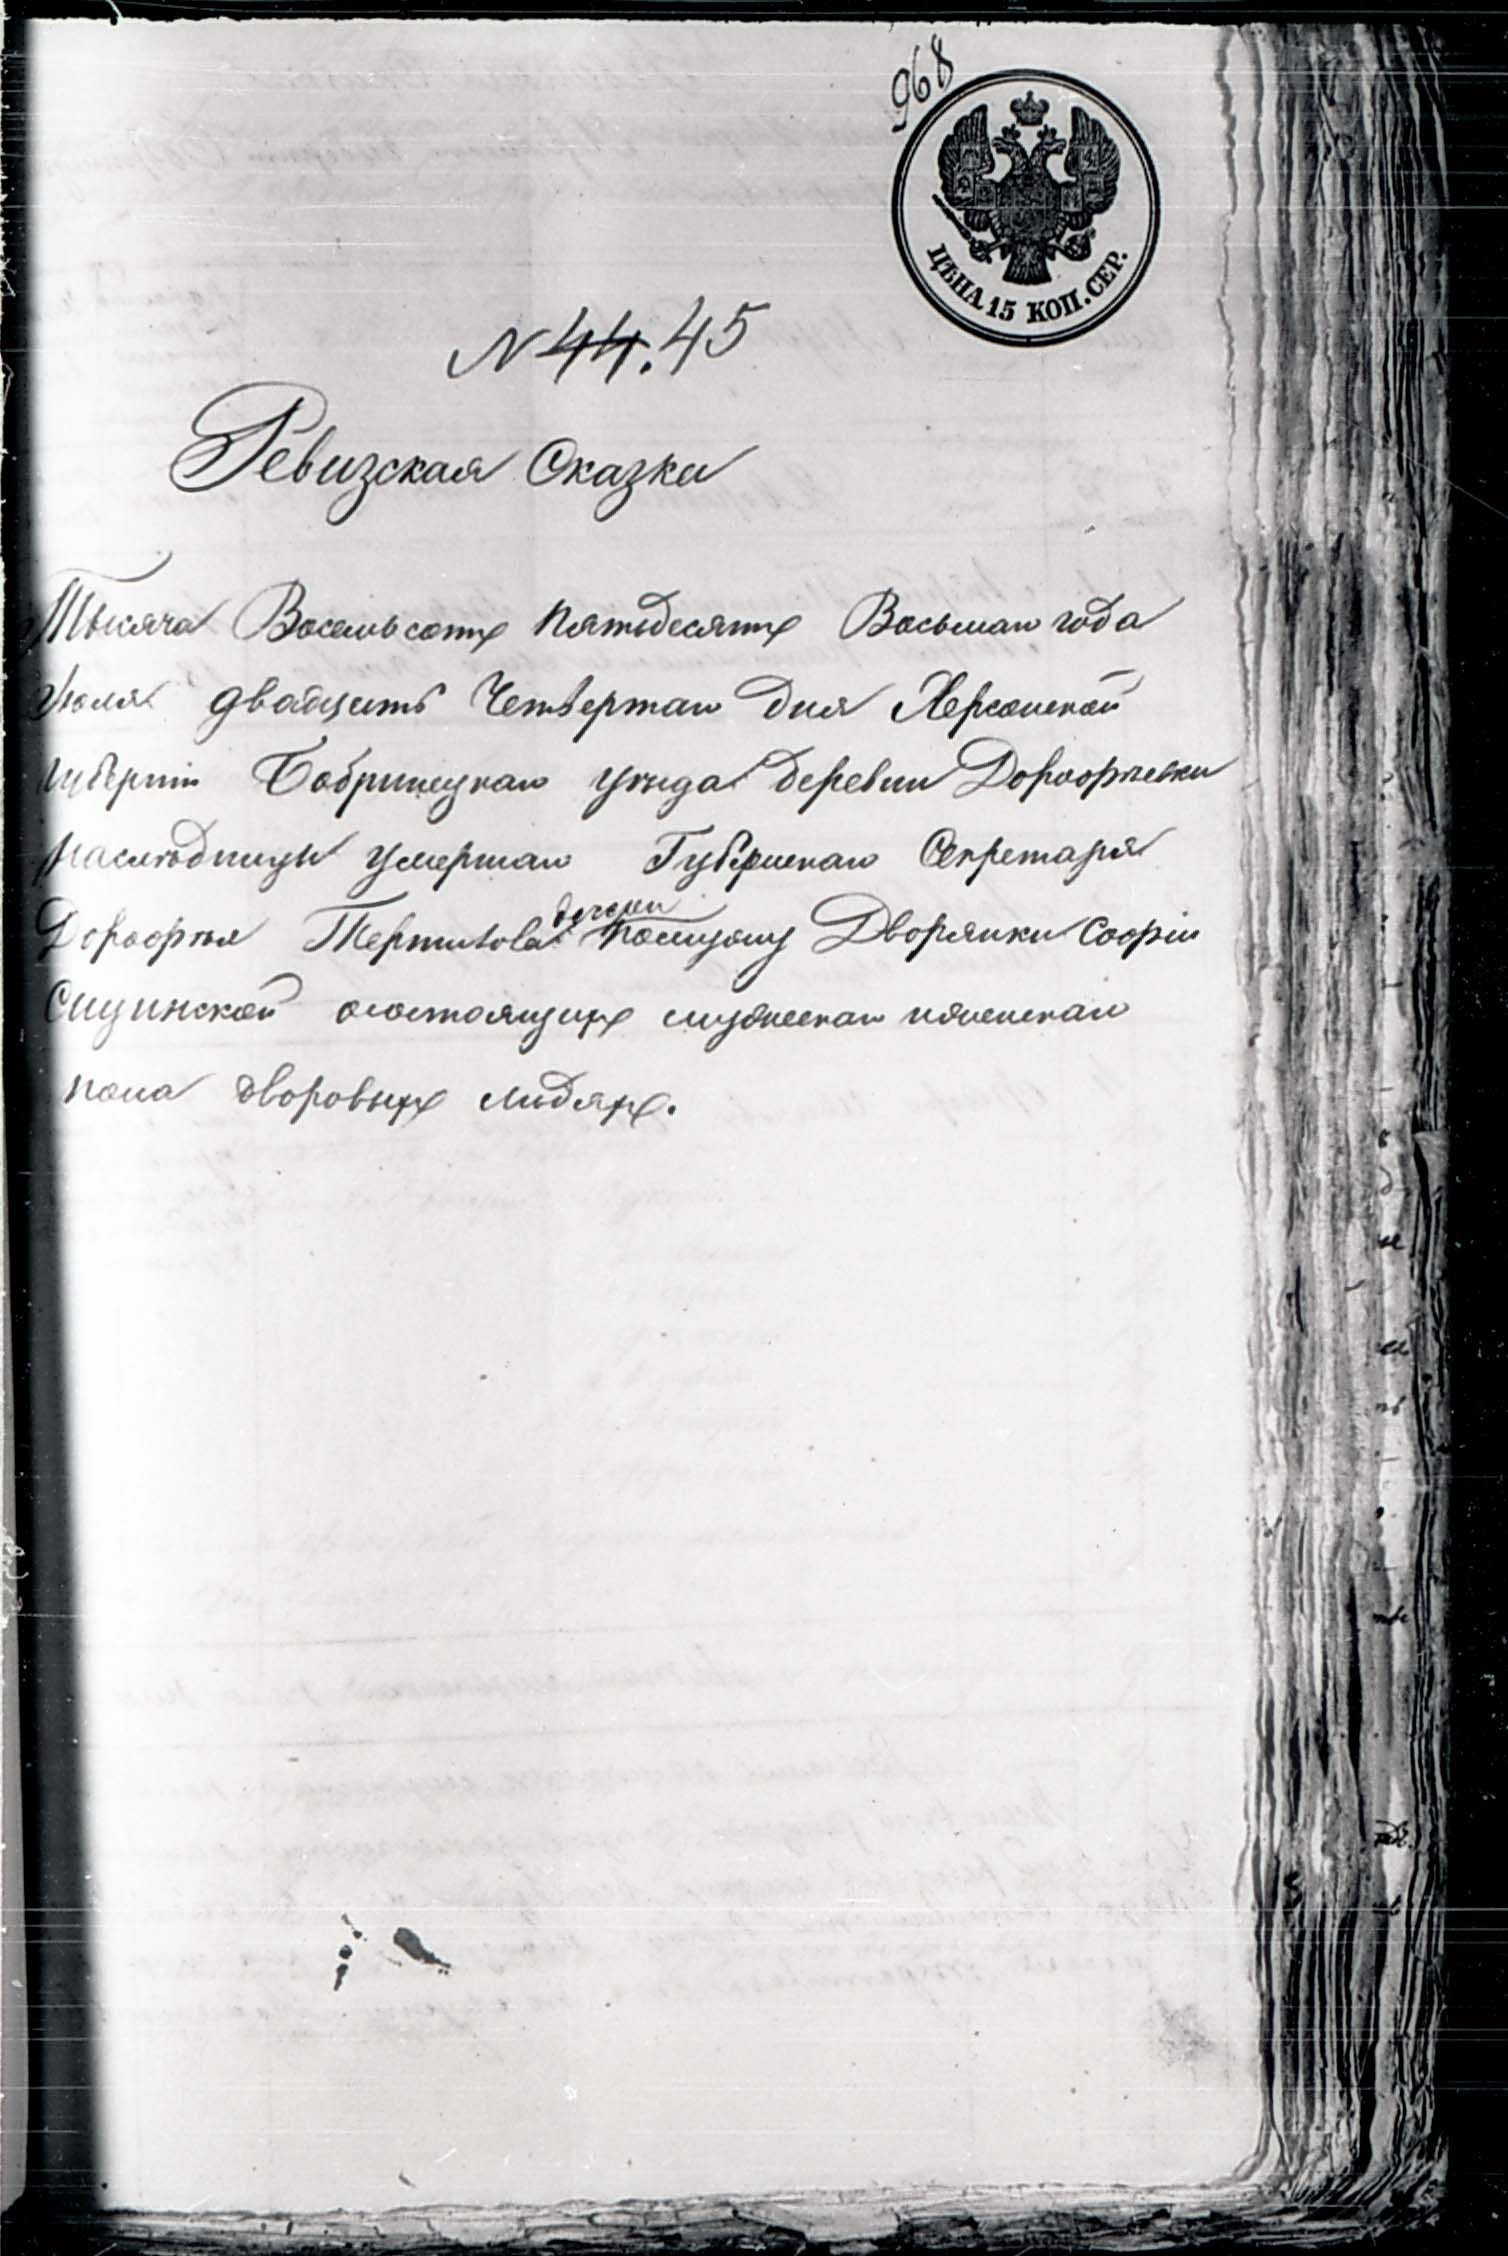 968
ЦѢНА 15 КОП. СЕР.
N 44. 45
Ревизская Сказка
Тысяча Восемьсотъ пятьдесятъ Восьмаго года
Июля двадцать Четвертаго дня Херсонской
губерніи Бобринецкаго уѣзда деревни Дорофѣевки
наслѣдницы умершаго Губернскаго Секретаря
Дорофѣя
дочери
Дворянки Софіи
Сицинской осостоящихъ мужескаго иженскаго
пола дворовыхъ людяхъ.